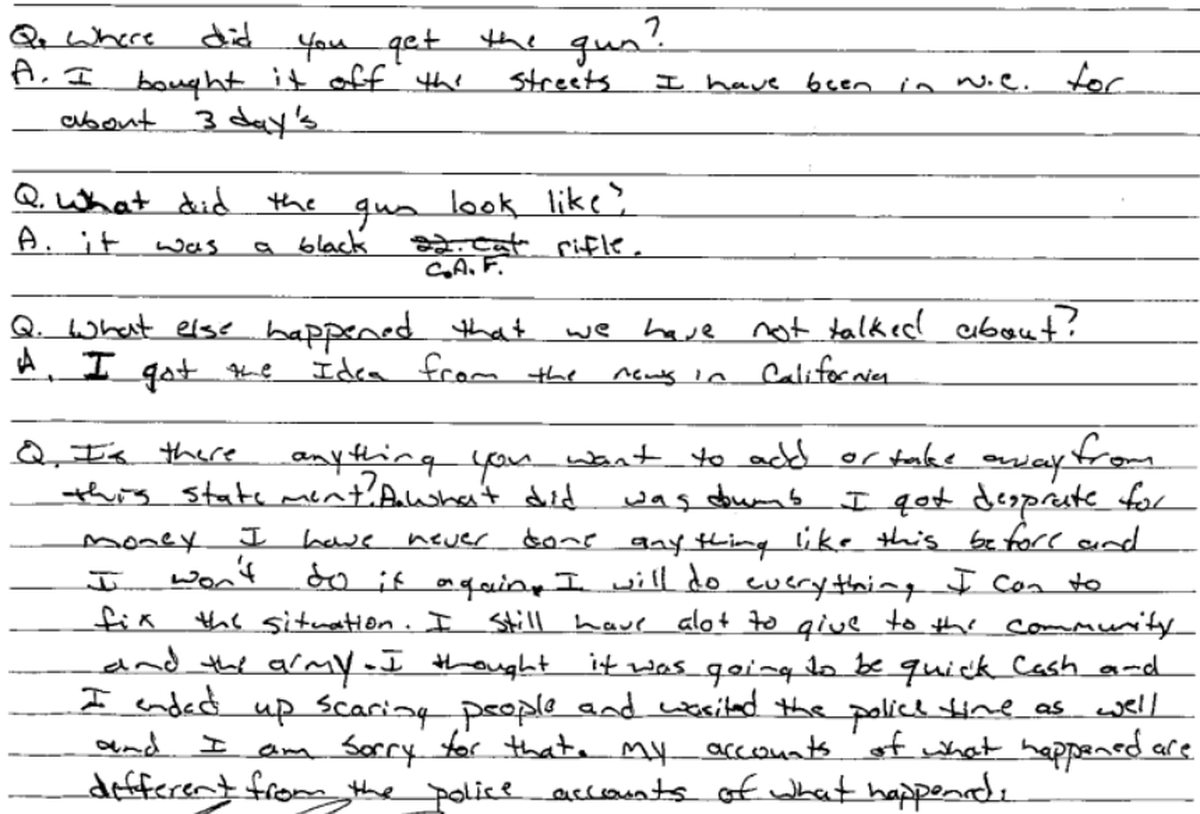 Q. Where did you get the gun?
A. I bought it off the streets I have been in N.C. for
about 3 day's
Q. What did the gun look like?
A. it was a black 22. Cal rifle.
C.A.F.
Q. What else happened that we have not talked about?
A. I got the Idea from the news in California
Q. Is there anything you want to add or take away from
this statement? A. what did was dumb I got desprate for
money I have never done anything like this before and
I won't do it again. I will do everything I can to
fix the situation. I still have alot to give to the community
and the army. I thought it was going to be quick cash and
I ended up scaring people and wasited the police time as well
and I am sorry for that. My accounts of what happened are
different from the police accounts of what happened.